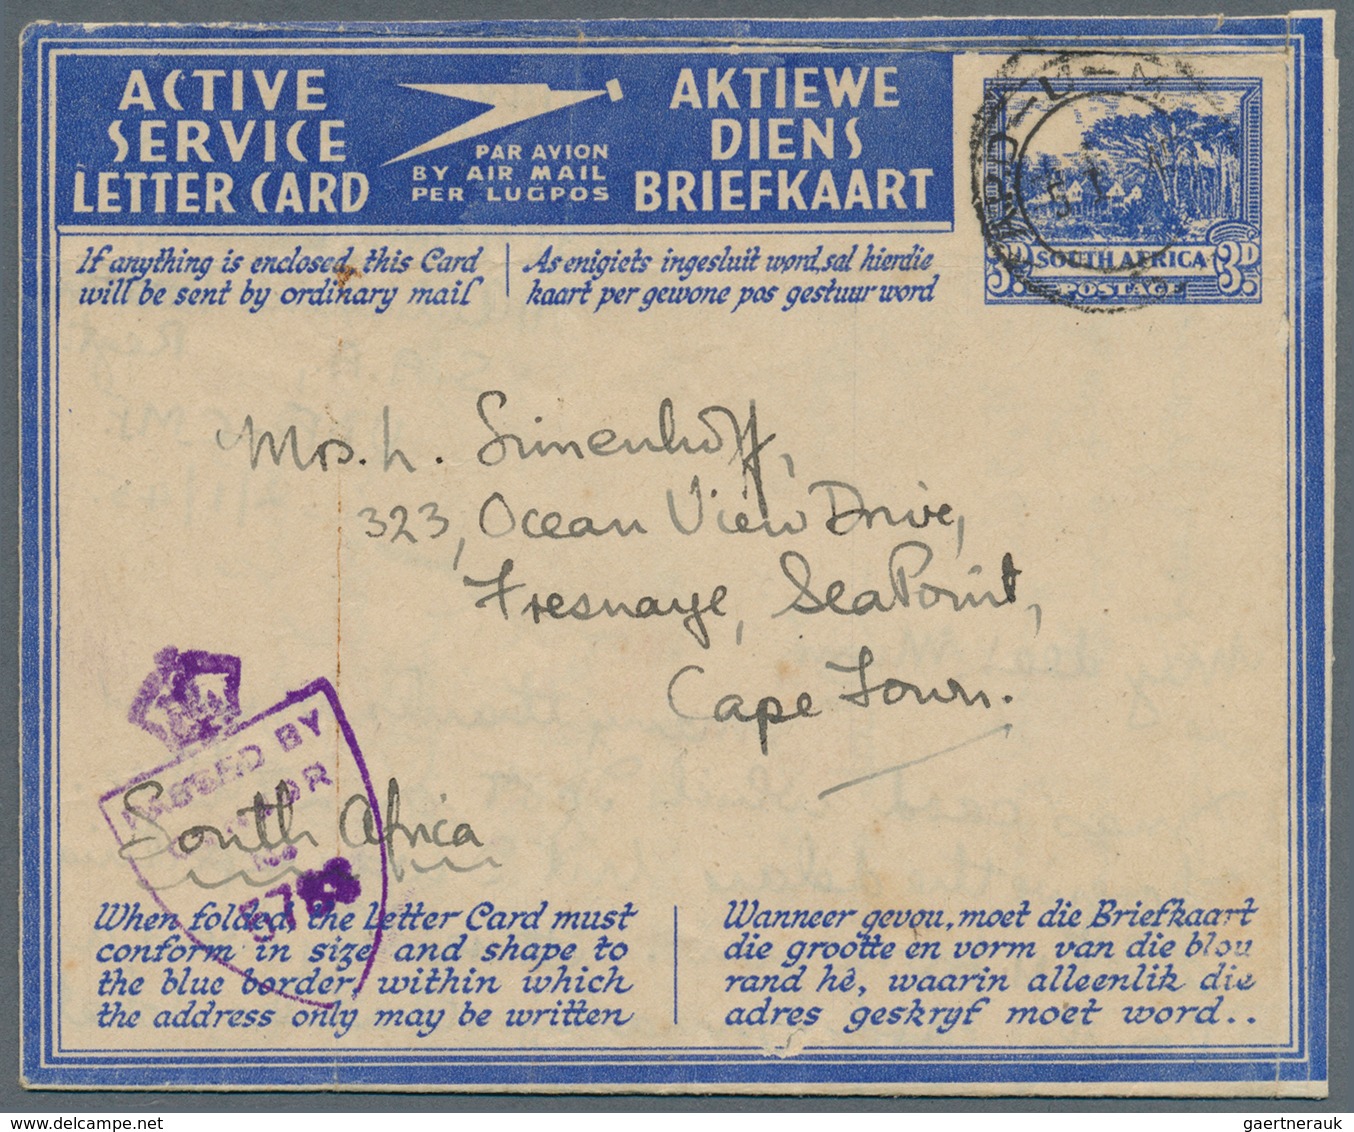 ACTIVE
SERVICE
LETTER CARD
PAR AVION
BY AIR MAIL
PER LUGPOS
AKTIEWE
DIENS
BRIEFKAART
3D SOUTH AFRICA 3D
POSTAGE
If anything is enclosed, this Card
will be sent by ordinary mail
As enigiets ingesluit word, sal hierdie
kaart per gewone pos gestuur word
Mrs. h. Simenhoff,
323, Ocean View Drive,
Fresnaye, Sea Point,
Cape Town.
South Africa
PASSED BY
CENSOR
No
When folded, the Letter Card must
conform in size and shape to
the blue border, within which
the address only may be written
Wanneer gevou, moet die Briefkaart
die grootte en vorm van die blou
rand hê, waarin alleenlik die
adres geskryf moet word..
gaertnerauk @ delcampe.net